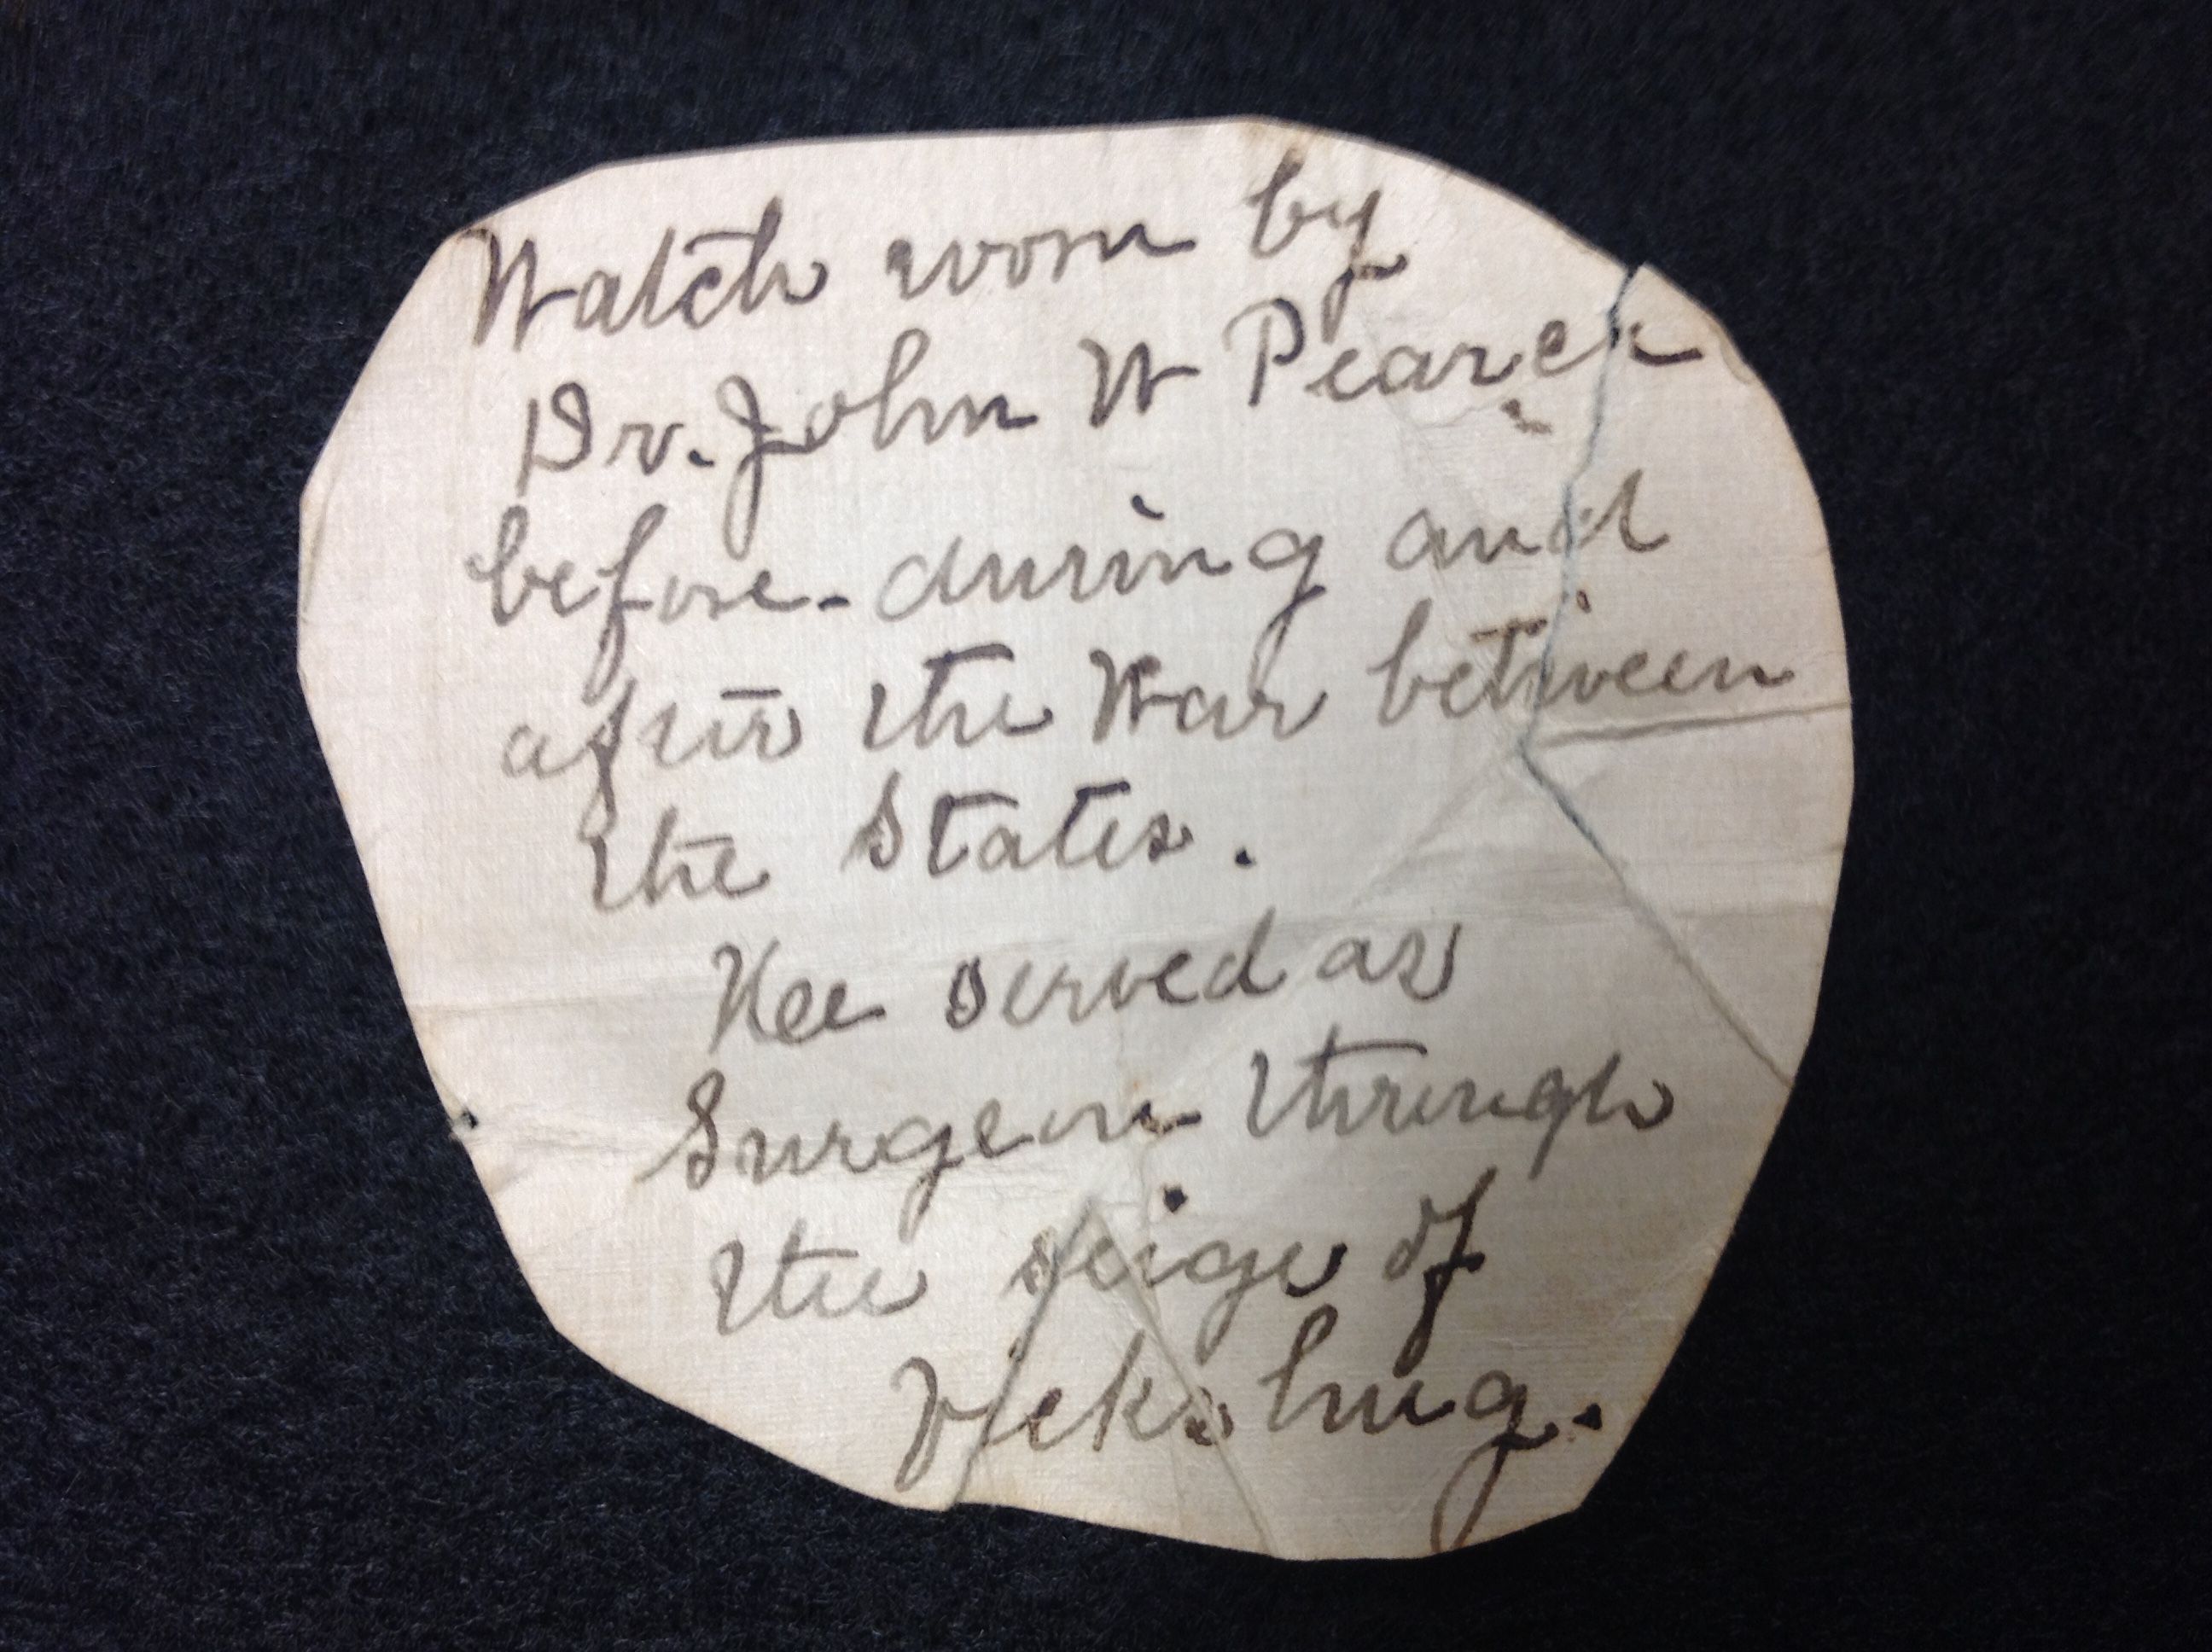 Watch worn by
Dr. John W Pearce
before - during and
after the War between
the States.
Hee served as
Surgeon through
the seige of
Vicksburg.